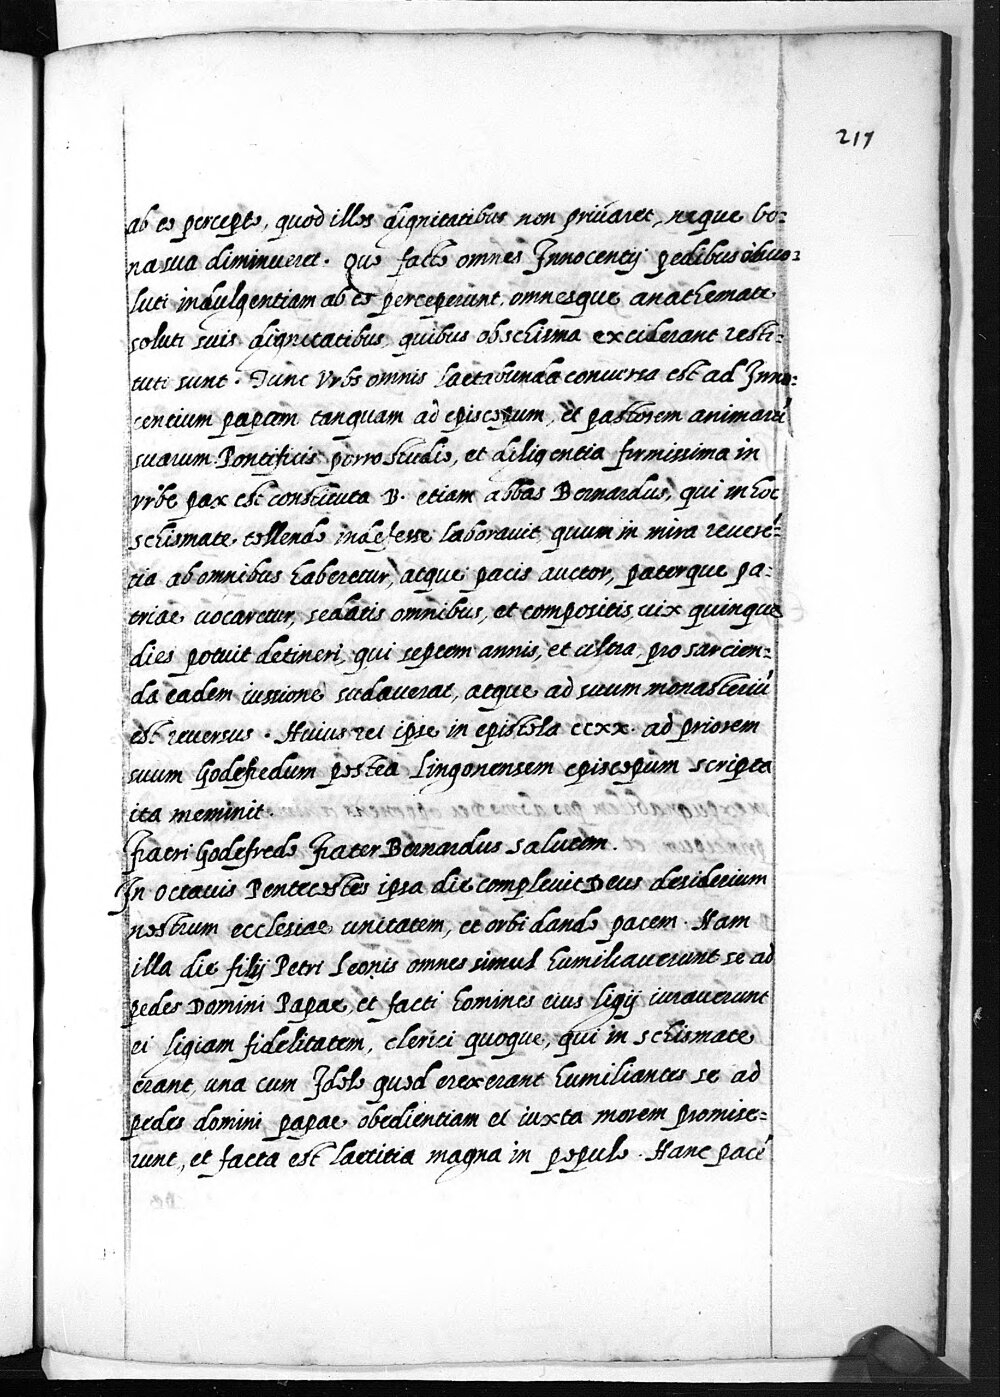 217
ab eo percepto, quod illos dignitatibus non priuaret, neque bo=
na sua diminueret. Quo facto omnes Innocentij pedibus obuo=
luti indulgentiam ab eo perceperunt, omnesque anathemate
soluti suis dignitatibus, quibus ob schisma exciderant resti=
tuti sunt. Tunc Vrbs omnis laetabunda conuersa est ad Inno=
centium papam tanquam ad episcopum, et pastorem animarū
suarum. Pontificis porro studio, et diligentia firmissima in
vrbe pax est constituta B. etiam abbas Bernardus, qui in hoc
schismate tollendo indefesse laborauit quum in mira reuerē=
tia ab omnibus haberetur, atque pacis auctor, paterque pa=
triae uocaretur, sedatis omnibus, et compositis uix quinque
dies potuit detineri, qui septem annis, et ultra, pro sarcien=
da eadem iussione sudauerat, atque ad suum monasteriū
est reuersus. Huius rei ipse in epistola ccxx. ad priorem
suum Godefredum postea Lingonensem episcopum scripta
ita meminit.
Fratri Godefredo Frater Bernardus salutem.
In octauis Pentecostes ipsa die compleuit Deus desiderium
nostrum ecclesiae unitatem, et orbi dando pacem. Nam
illa die filij Petri Leonis omnes simul humiliauerunt se ad
pedes Domini Papae, et facti homines eius ligij iurauerunt
ei ligiam fidelitatem, clerici quoque, qui in schismate
erant, una cum Idolo quod erexerant humiliantes se ad
pedes domini papae obedientiam ei iuxta morem promise=
runt, et facta est laetitia magna in populo. Hanc pacē